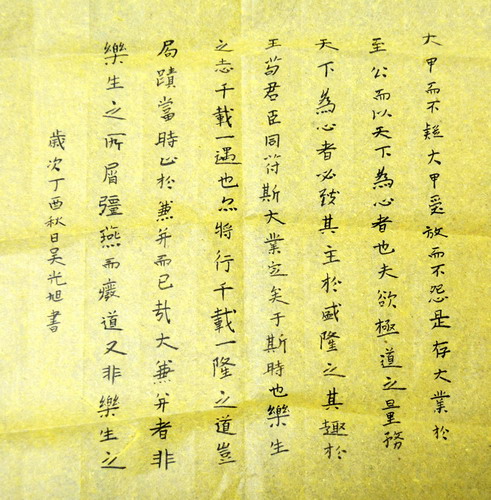 大甲而不疑大甲受放而不怨是存大業於
至公而以天下為心者也夫欲極道之量務
天下為心者必致其主於盛隆之其趣於
王苟君臣同符斯大業定矣于斯時也樂生
之志千載一遇也亦將行千載一隆之道豈
局蹟當時止於兼并而已哉大兼并者非
樂生之所屑彊燕而廢道又非樂生之
歲次丁酉秋日吴光旭書